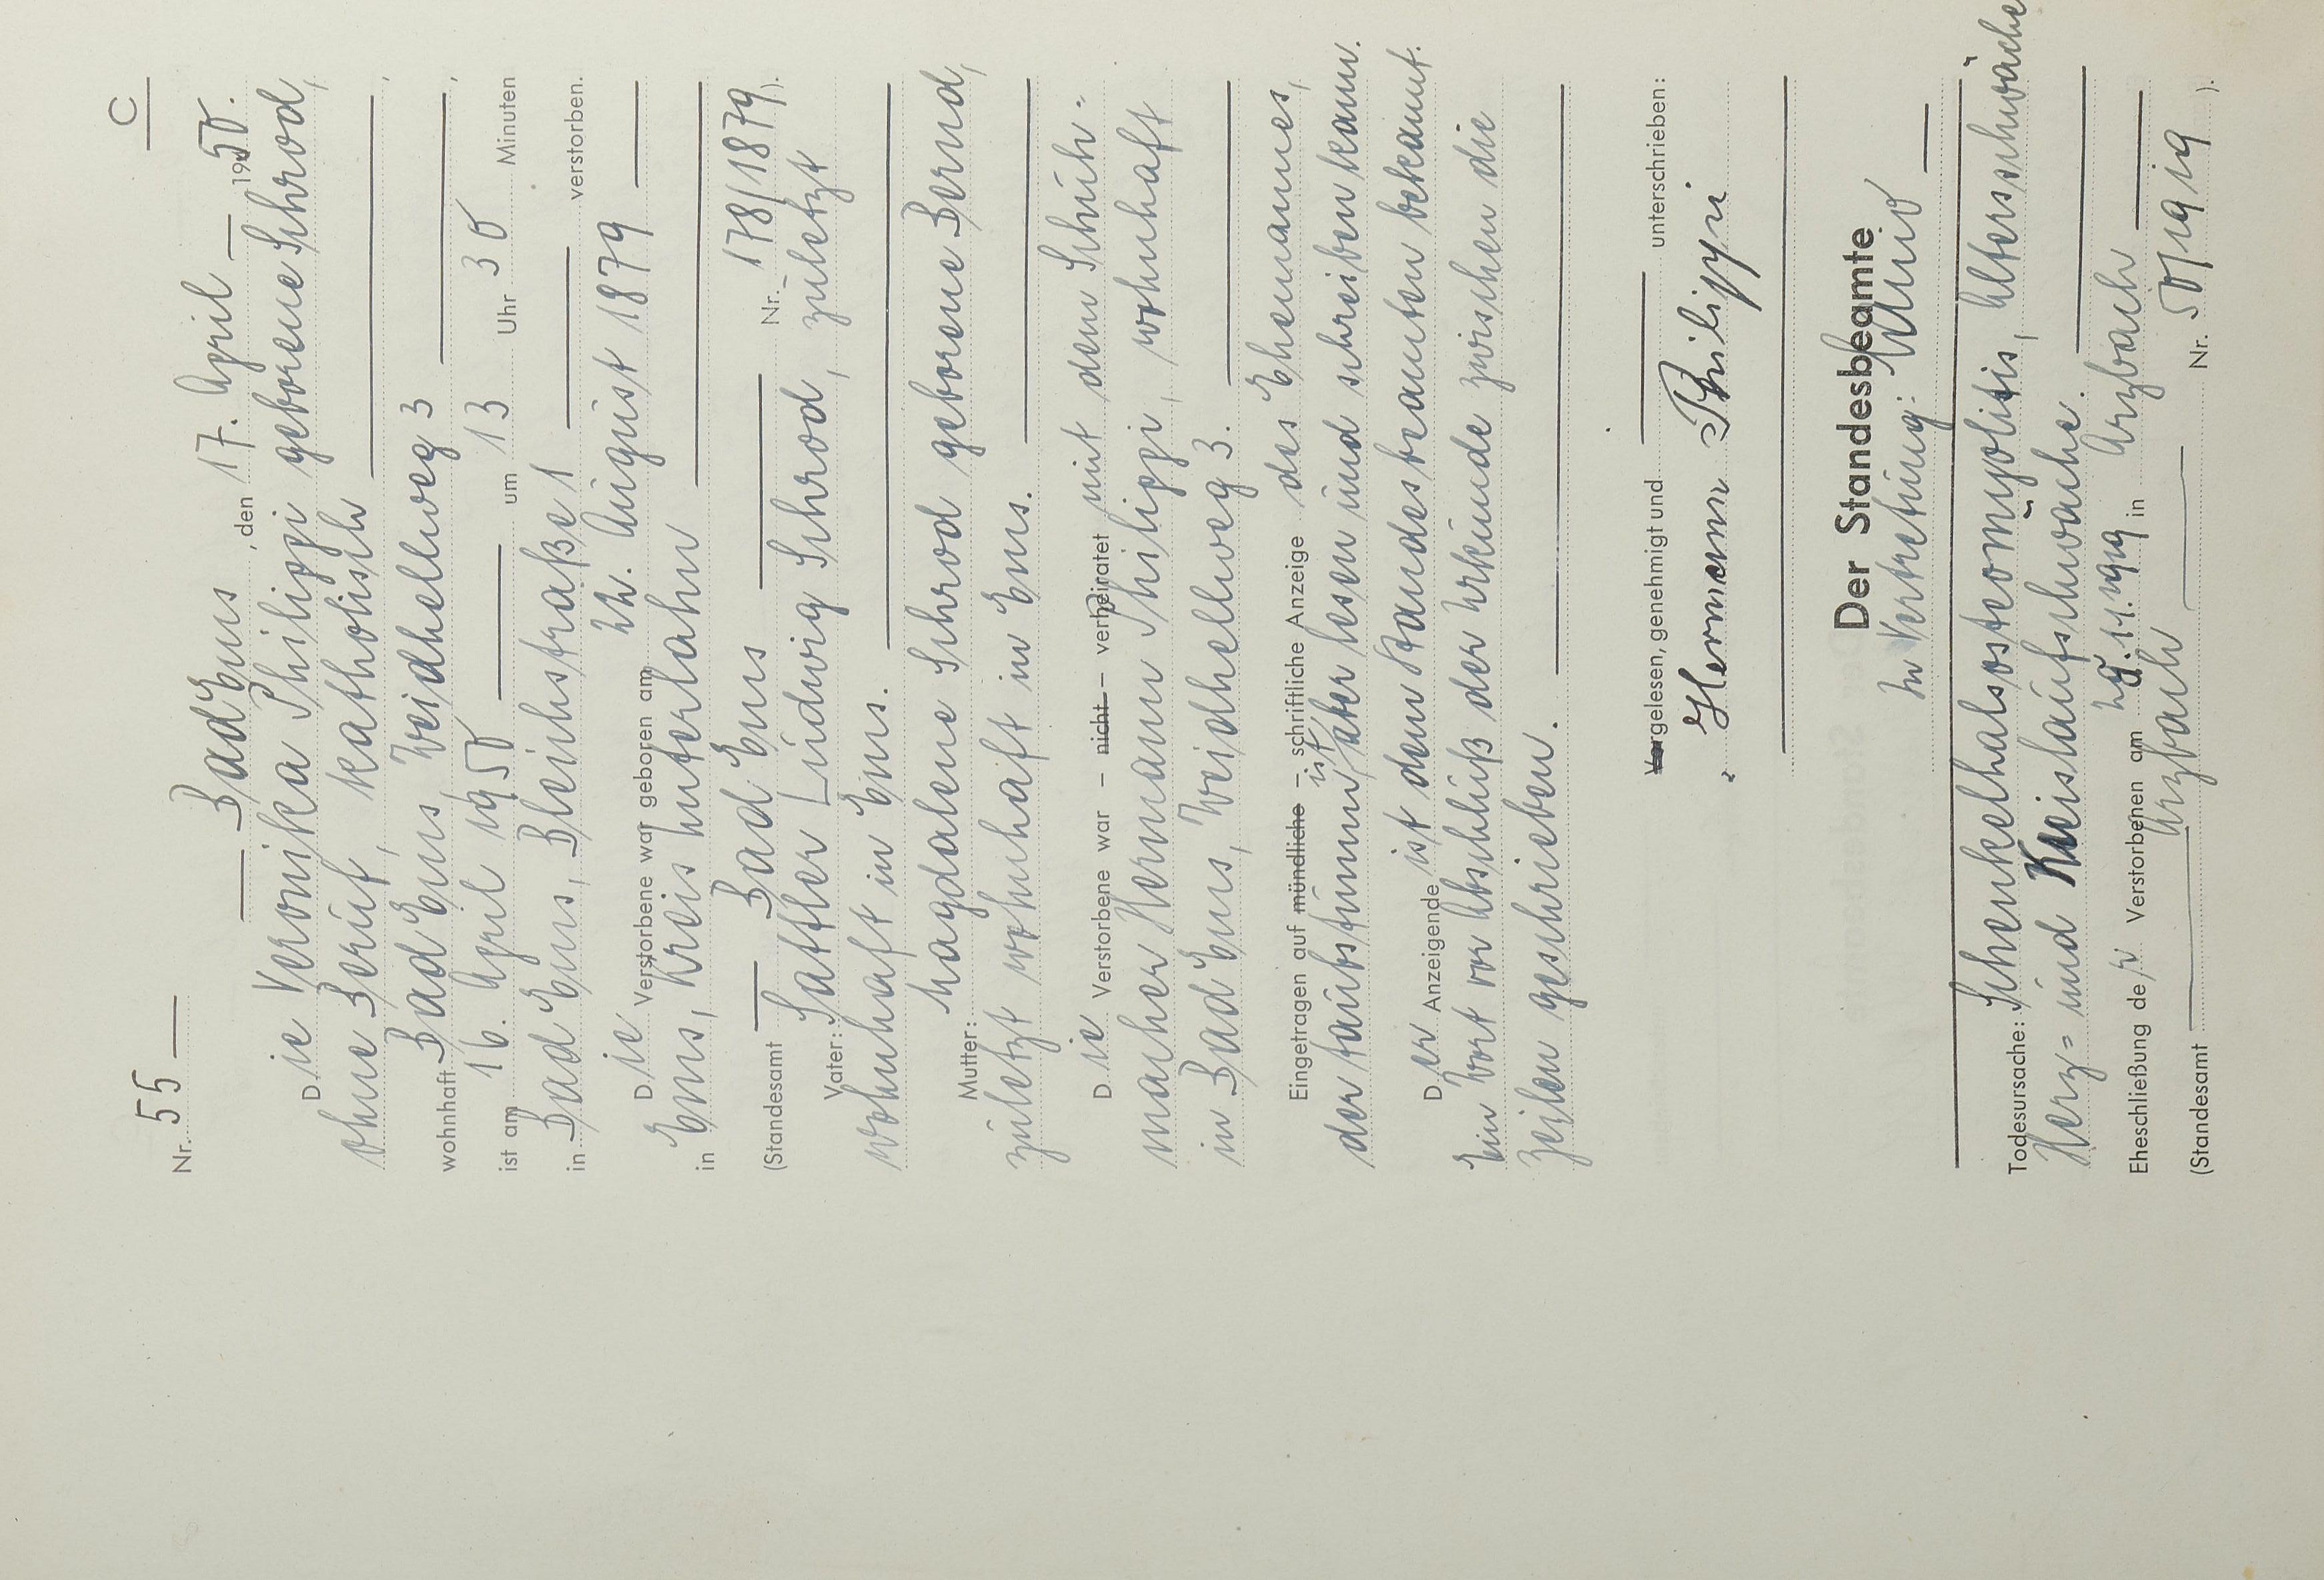 C
Nr. 55
Bad Ems, den 17. April 1950.
Die Veronika Philippi geborene Schrod,
ohne Beruf, katholisch,
wohnhaft Bad Ems, Weidhellweg 3,
ist am 16. April 1950 um 13 Uhr 30 Minuten
in Bad Ems, Bleichstraße 1 verstorben.
Die Verstorbene war geboren am 22. August 1879
in Ems, Kreis Unterlahn
(Standesamt Bad Ems Nr. 178/1879).
Vater: Sattler Ludwig Schrod, zuletzt
wohnhaft in Ems.
Mutter: Magdalene Schrod geborene Bernd,
zuletzt wohnhaft in Ems.
Die Verstorbene war – nicht – verheiratet mit dem Schuh-
macher Hermann Philippi, wohnhaft
in Bad Ems, Weidhellweg 3.
Eingetragen auf mündliche – schriftliche Anzeige des Ehemannes,
der taubstumm ist aber lesen und schreiben kann.
Der Anzeigende ist dem Standesbeamten bekannt.
Ein Wort vor Abschluß der Urkunde zwischen die
Zeilen geschrieben.
Vorgelesen, genehmigt und unterschrieben:
Hermann Philippi
Der Standesbeamte
In Vertretung:
Todesursache: Schenkelhalsosteomyolitis, Altersschwäche
Herz= und Kreislaufschwäche.
Eheschließung der Verstorbenen am 11.1919 in Arzbach
(Standesamt Arzbach Nr. 50/1919).